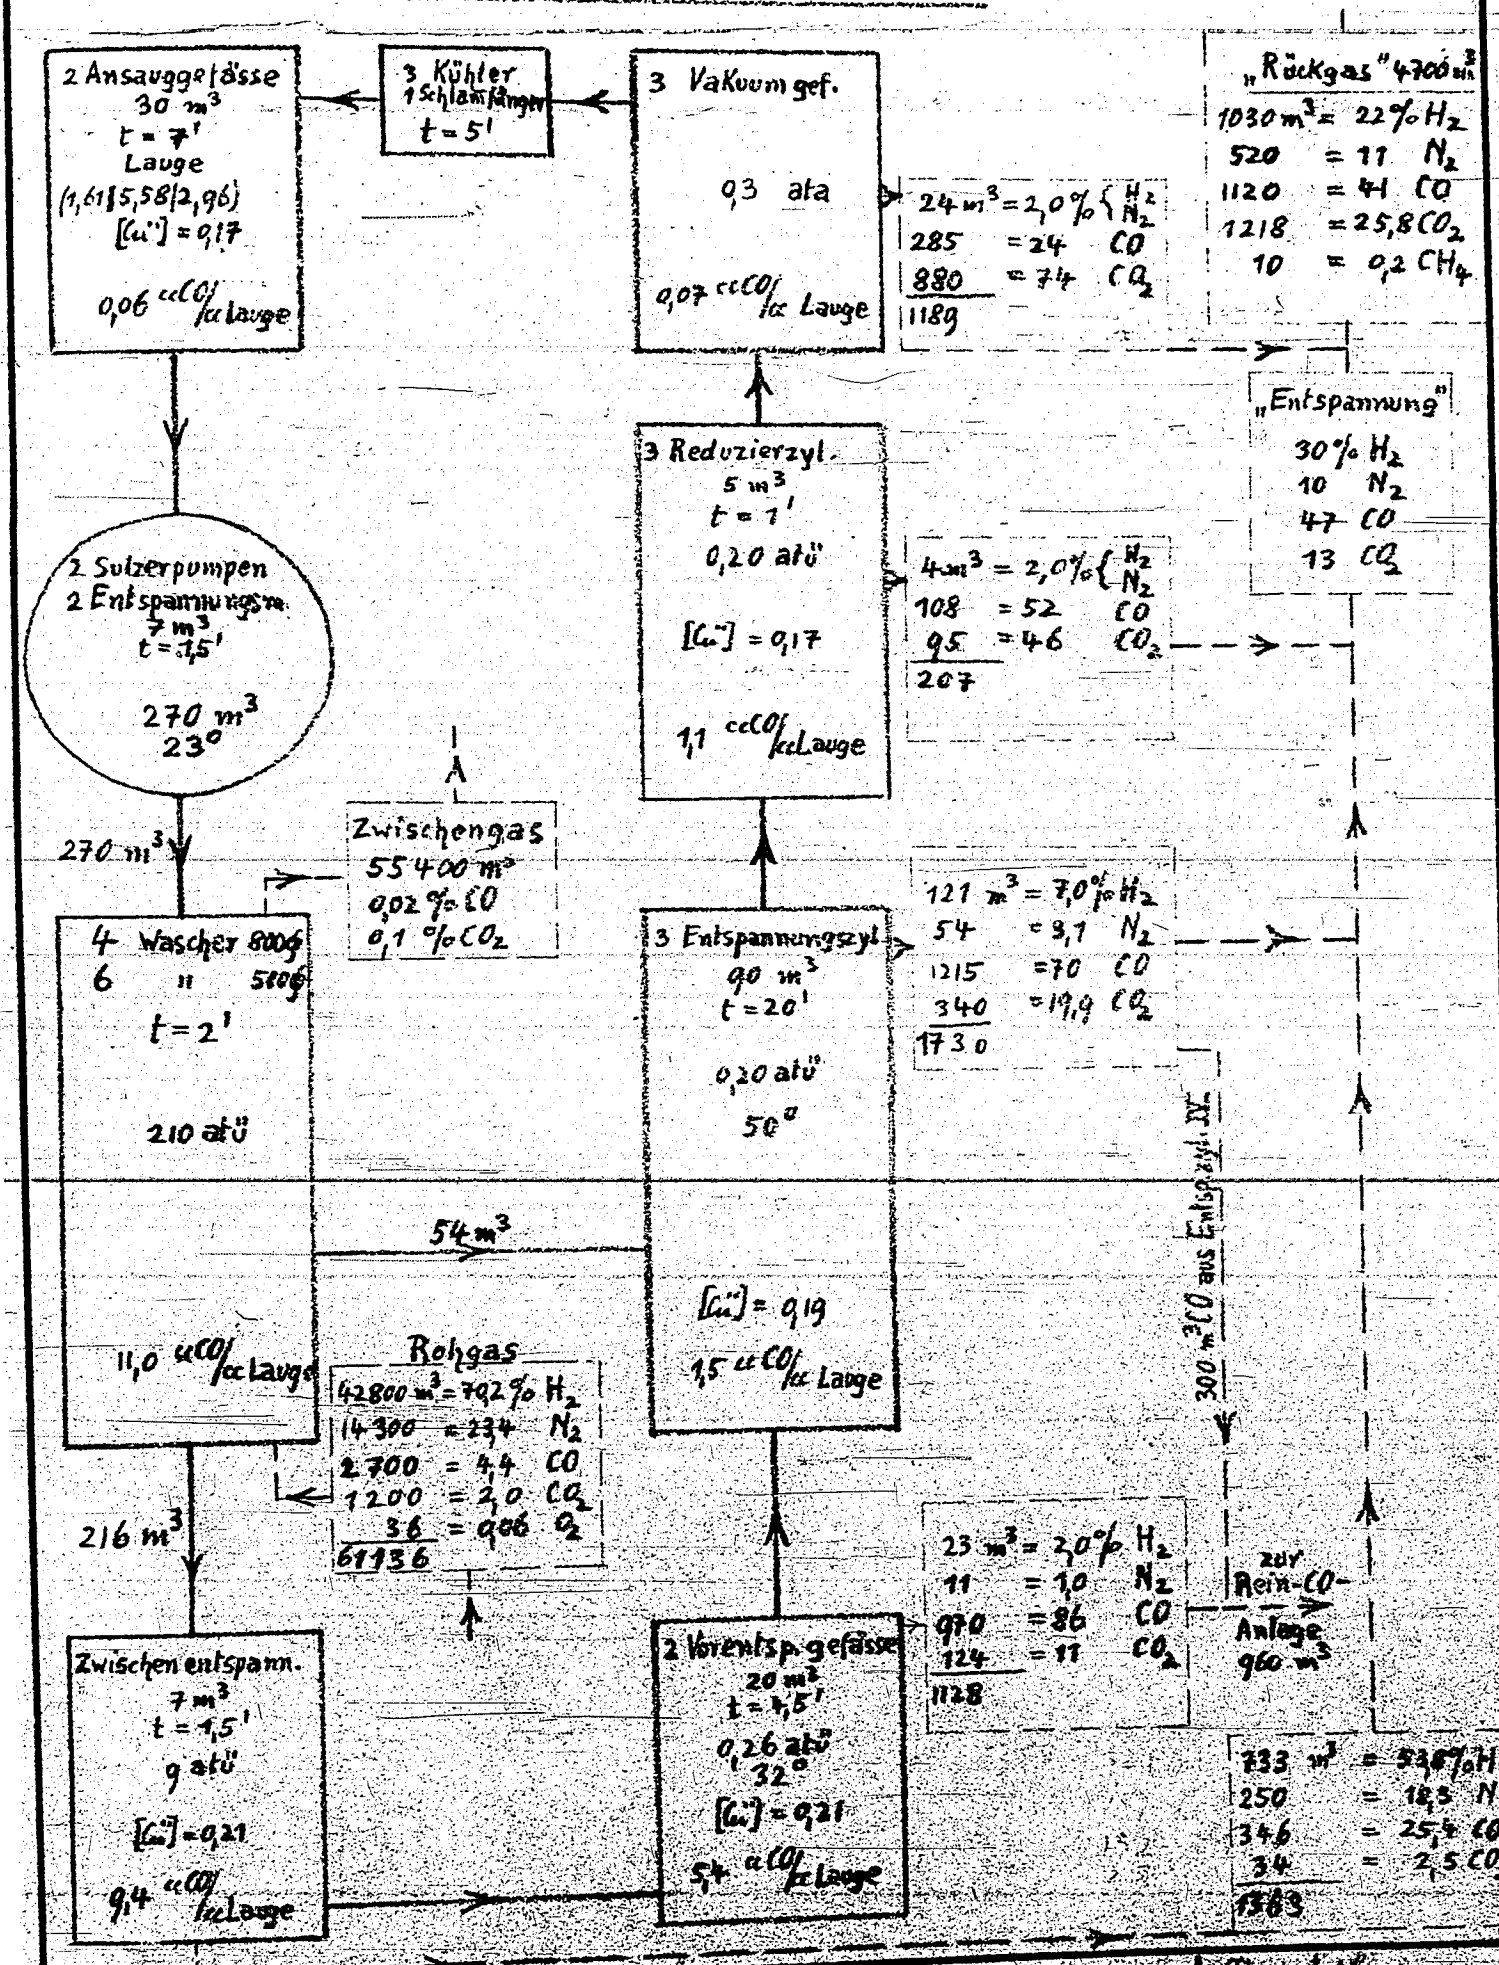 2 Ansauggefässe
30 m³
t = 7'
Lauge
(1,61/5,58/2,96)
[Cu¨] = 0,17
0,06 ccCO/cc Lauge
3 Kühler
1 Schlamfänger
t = 5'
3 Vakuumgef.
0,3 ata
0,07 ccCO/cc Lauge
24 m³ = 2,0% { H₂ N₂
285 = 24 CO
880 = 74 CO₂
1189
„Rückgas" 4700 m³
1030 m³ = 22% H₂
520 = 11 N₂
1120 = 41 CO
1218 = 25,8 CO₂
10 = 0,2 CH₄
„Entspannung"
30% H₂
10 N₂
47 CO
13 CO₂
3 Reduzierzyl.
5 m³
t = 1'
0,20 atü
[Cu¨] = 0,17
1,1 ccCO/cc Lauge
4 m³ = 2,0% { H₂ N₂
108 = 52 CO
95 = 46 CO₂
207
2 Sulzerpumpen
2 Entspannungsm.
7 m³
t = 1,5'
270 m³
23°
270 m³
Zwischengas
55400 m³
0,02 % CO
0,1 % CO₂
4 Wascher 800∮
6 " 500∮
t = 2'
210 atü
11,0 ccCO/cc Lauge
54 m³
3 Entspannungszyl
90 m³
t = 20'
0,20 atü
50°
[Cu¨] = 0,19
1,5 ccCO/cc Lauge
121 m³ = 7,0% H₂
54 = 3,1 N₂
1215 = 70 CO
340 = 19,9 CO₂
1730
300 m³ CO aus Entsp.zyl. IV
Rohgas
42800 m³ = 70,2% H₂
14300 = 23,4 N₂
2700 = 4,4 CO
1200 = 2,0 CO₂
36 = 0,06 O₂
61136
216 m³
Zwischenentspann.
7 m³
t = 1,5'
9 atü
[Cu¨] = 0,21
9,4 ccCO/cc Lauge
2 Vorentsp.gefässe
20 m³
t = 4,5'
0,26 atü
32°
[Cu¨] = 0,21
5,4 ccCO/cc Lauge
23 m³ = 2,0% H₂
11 = 1,0 N₂
970 = 86 CO
124 = 11 CO₂
1128
zur
Rein-CO-
Anlage
960 m³
733 m³ = 53,8% H
250 = 18,3 N
346 = 25,4 CO
34 = 2,5 CO
1363